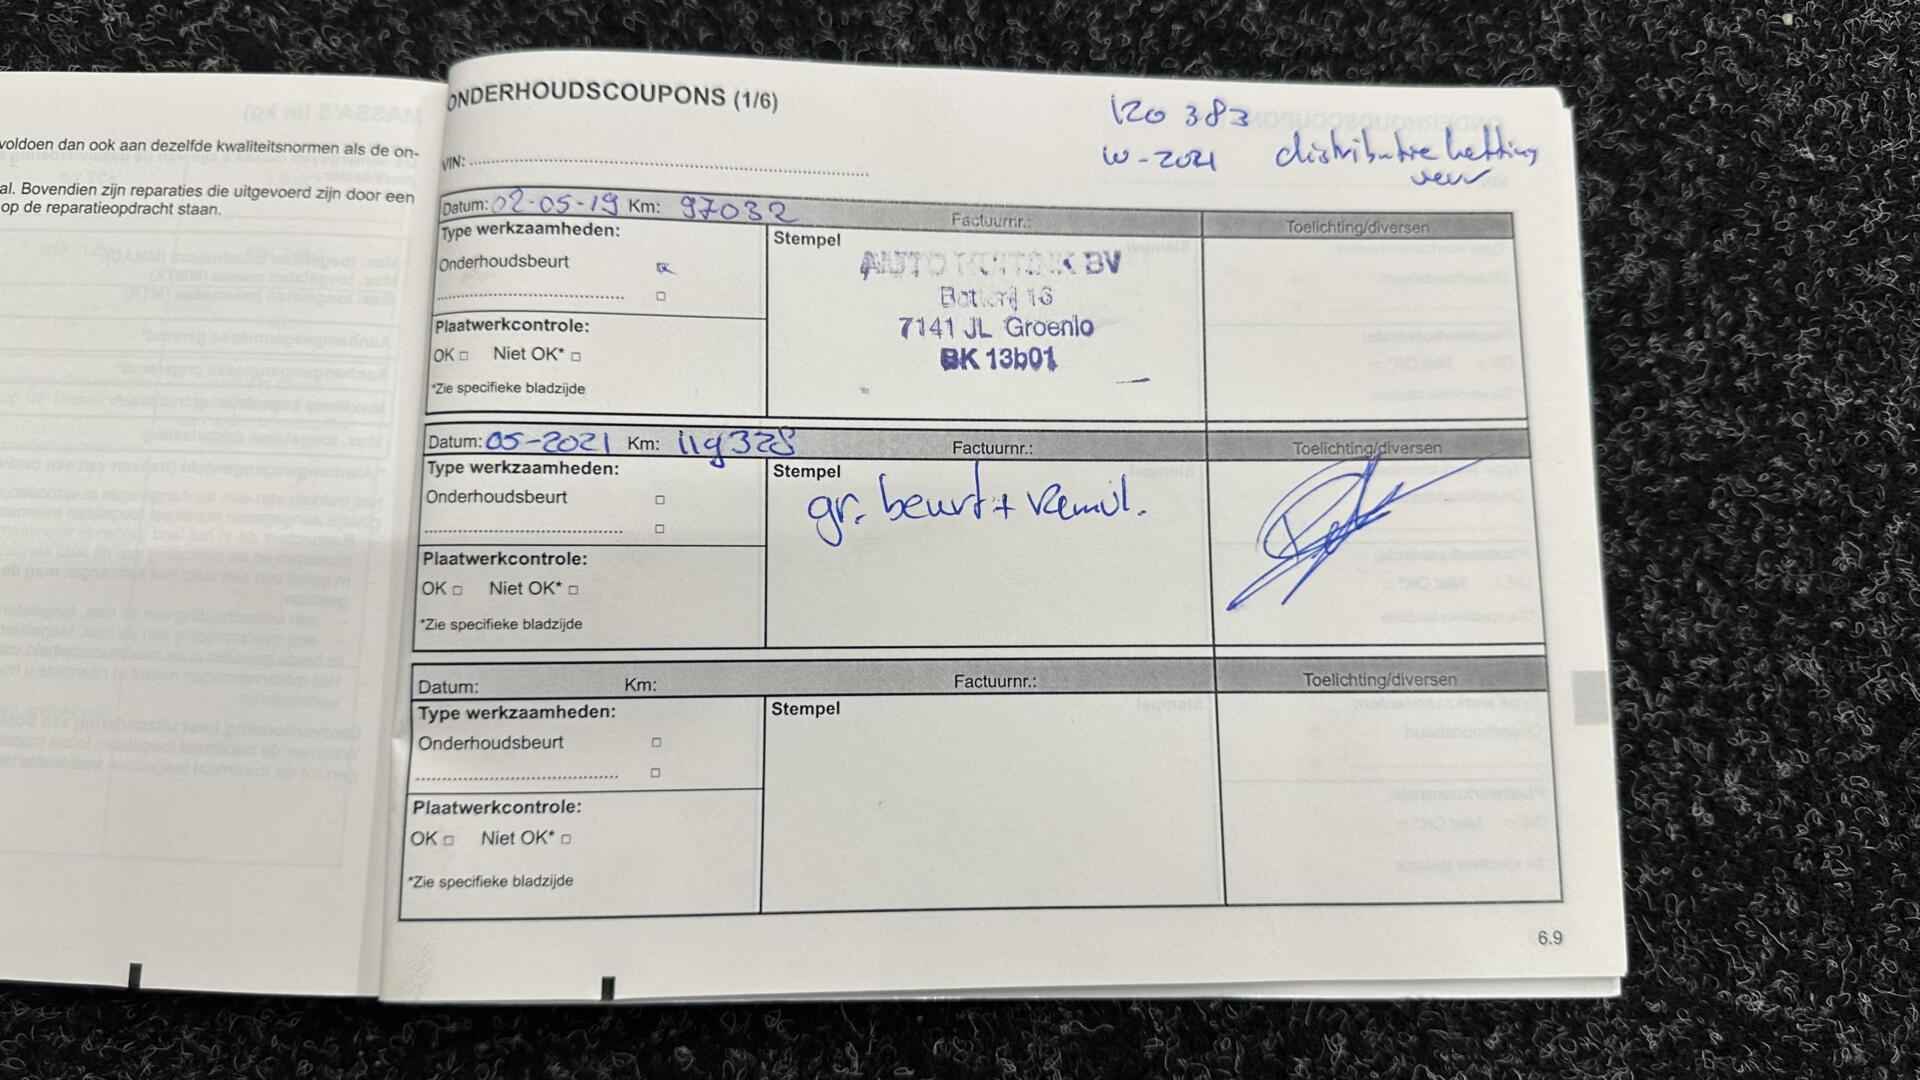 voldoen dan ook aan dezelfde kwaliteitsnormen als de on-
al. Bovendien zijn reparaties die uitgevoerd zijn door een
op de reparatieopdracht staan.
ONDERHOUDSCOUPONS (1/6)
120 383
2021 distributie ketting
VIN:
Datum: 02-05-19 Km: 97032 Factuurnr.: Toelichting/diversen
Type werkzaamheden:
Stempel
Onderhoudsbeurt
AUTO BV
16
7141 JL Groenlo
BK 13b01
Plaatwerkcontrole:
OK Niet OK*
*Zie specifieke bladzijde
Datum: 05-2021 Km: 119328 Factuurnr.: Toelichting/diversen
Type werkzaamheden:
Stempel
Onderhoudsbeurt
gr. beurt + Remvl.
Plaatwerkcontrole:
OK Niet OK*
*Zie specifieke bladzijde
Datum: Km: Factuurnr.: Toelichting/diversen
Type werkzaamheden:
Stempel
Onderhoudsbeurt
Plaatwerkcontrole:
OK Niet OK*
*Zie specifieke bladzijde
6.9